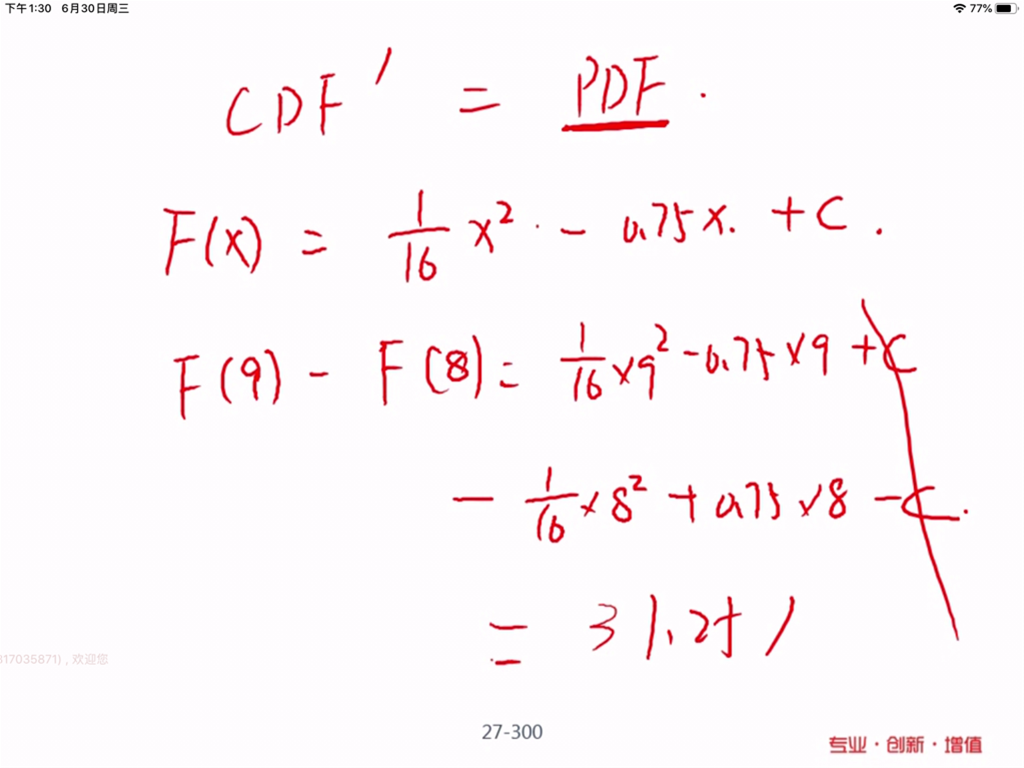 下午1:30 6月30日周三
77%
CDF' = PDF.
F(x) = 1/16 x² - 0.75x. + C.
F(9) - F(8) = 1/16 × 9² - 0.75 × 9 + C
- 1/16 × 8² + 0.75 × 8 - C.
= 31.25 /
817035871) , 欢迎您
27-300
专业·创新·增值